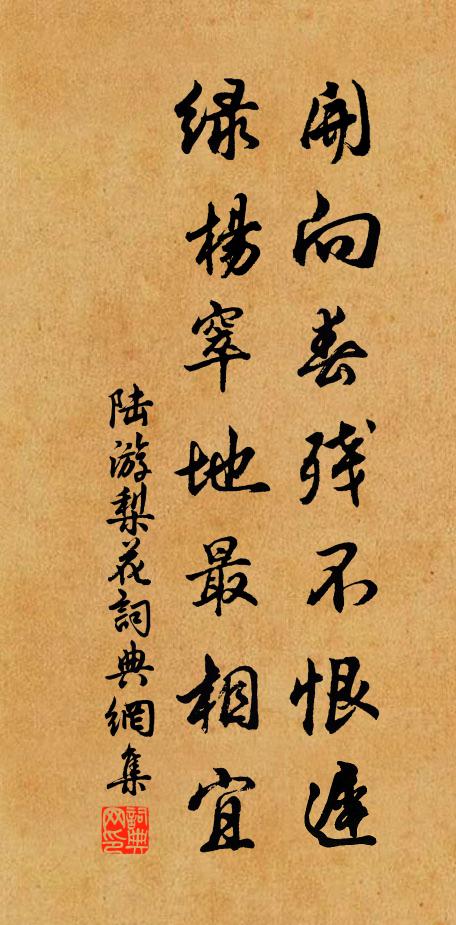 開向春殘不恨遲
綠楊窣地最相宜
陸游梨花詞典網集
詞典網印